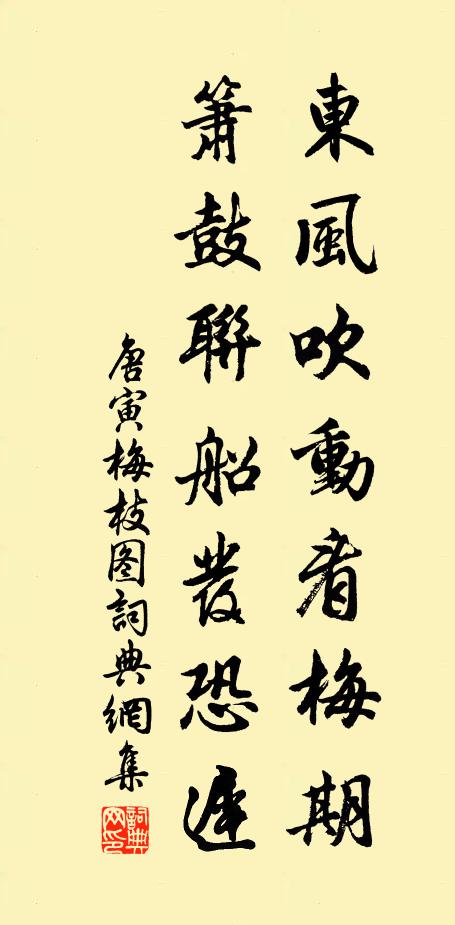 東風吹動看梅期
簫鼓聯船發恐遲
唐寅梅枝图詞典網集
詞典网印